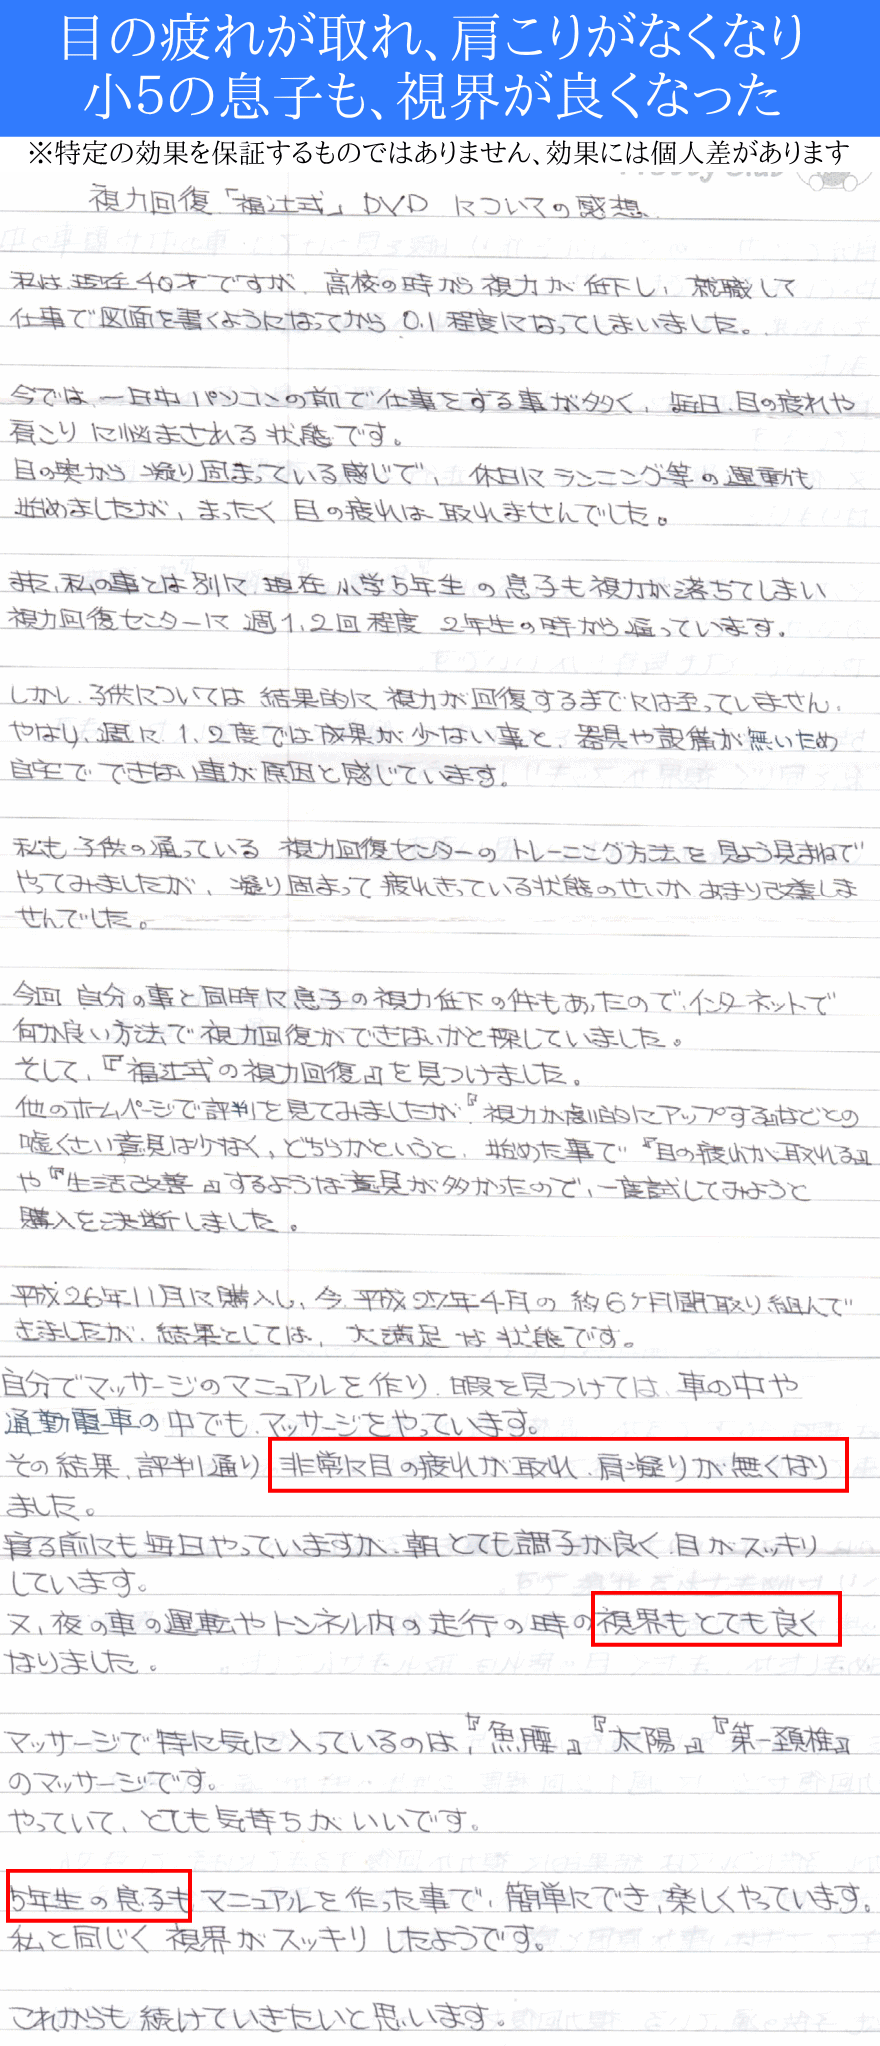 目の疲れが取れ、肩こりがなくなり
小5の息子も、視界が良くなった
※特定の効果を保証するものではありません、効果には個人差があります
視力回復「福辻式」DVD についての感想
私は現在40才ですが、高校の時から視力が低下し、就職して
仕事で図面を書くようになってから 0.1程度になってしまいました。
今では、一日中パソコンの前で仕事をする事が多く、毎日、目の疲れや
肩こりに悩まされる状態です。
目の奥から凝り固まっている感じで、休日にランニング等の運動も
始めましたが、まったく目の疲れは取れませんでした。
また、私の事とは別に現在小学5年生の息子も視力が落ちてしまい
視力回復センターに週1,2回程度 2年生の時から通っています。
しかし、子供については結果的に視力が回復するまでには至っていません。
やはり、週に1,2度では成果が少ない事と、器具や設備が無いため
自宅でできない事が原因と感じています。
私も子供の通っている視力回復センターのトレーニング方法を見よう見まねで
やってみましたが、凝り固まって疲れきっている状態のせいかあまり改善しま
せんでした。
今回 自分の事と同時に息子の視力低下の件もあったので、インターネットで
何か良い方法で視力回復ができないかと探していました。
そして、『福辻式の視力回復』を見つけました。
他のホームページで評判を見てみましたが『視力が劇的にアップする』などとの
嘘くさい意見は少なく、どちらかというと、始めた事で『目の疲れが取れる』
や『生活改善』するような意見が多かったので、一度試してみようと
購入を決断しました。
平成26年11月に購入し、今、平成27年4月の約6ヶ月間取り組んで
きましたが、結果としては、大満足な状態です。
自分でマッサージのマニュアルを作り、暇を見つけては、車の中や
通勤電車の中でも、マッサージをやっています。
その結果、評判通り 非常に目の疲れが取れ、肩凝りが無くなり
ました。
寝る前にも毎日やっていますが、朝とても調子が良く、目がスッキリ
しています。
又、夜の車の運転やトンネル内の走行の時の視界もとても良く
なりました。
マッサージで特に気に入っているのは、『魚腰』『太陽』『第一頚椎』
のマッサージです。
やっていて、とても気持ちがいいです。
5年生の息子も、マニュアルを作った事で、簡単にでき、楽しくやっています。
私と同じく 視界がスッキリしたようです。
これからも続けていきたいと思います。